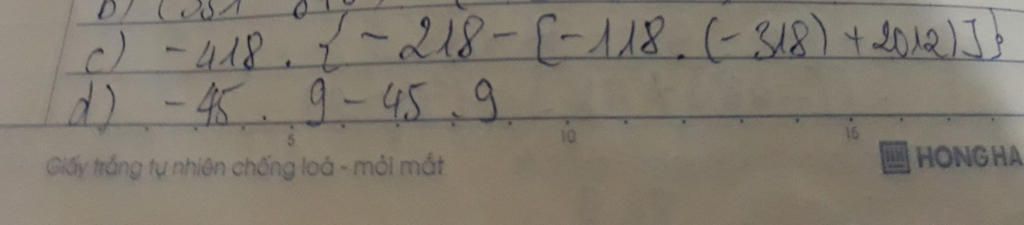 c) -418 . { -218 - [-118 . (-318) + 2012)]}
d) -45 . 9 - 45 . 9
5 10 15
Giấy trắng tự nhiên chống loá - mỏi mắt
HONG HA